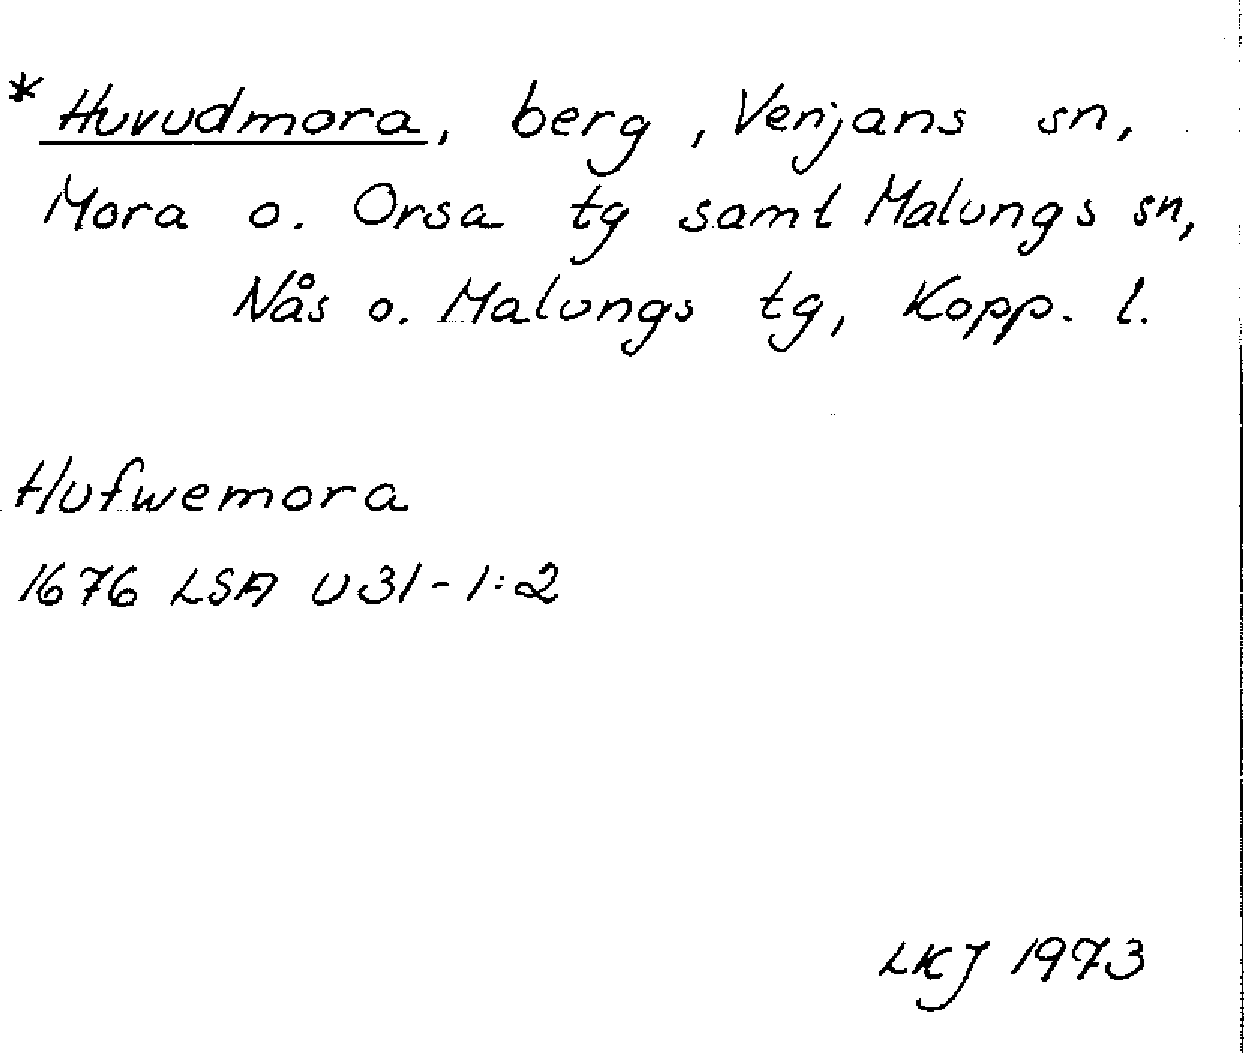 * Huvudmora, berg, Venjans sn,
Mora o. Orsa tg samt Malungs sn,
Nås o. Malungs tg, Kopp. l.
Hufwemora
1676 LSA U31-1:2
LKJ 1973